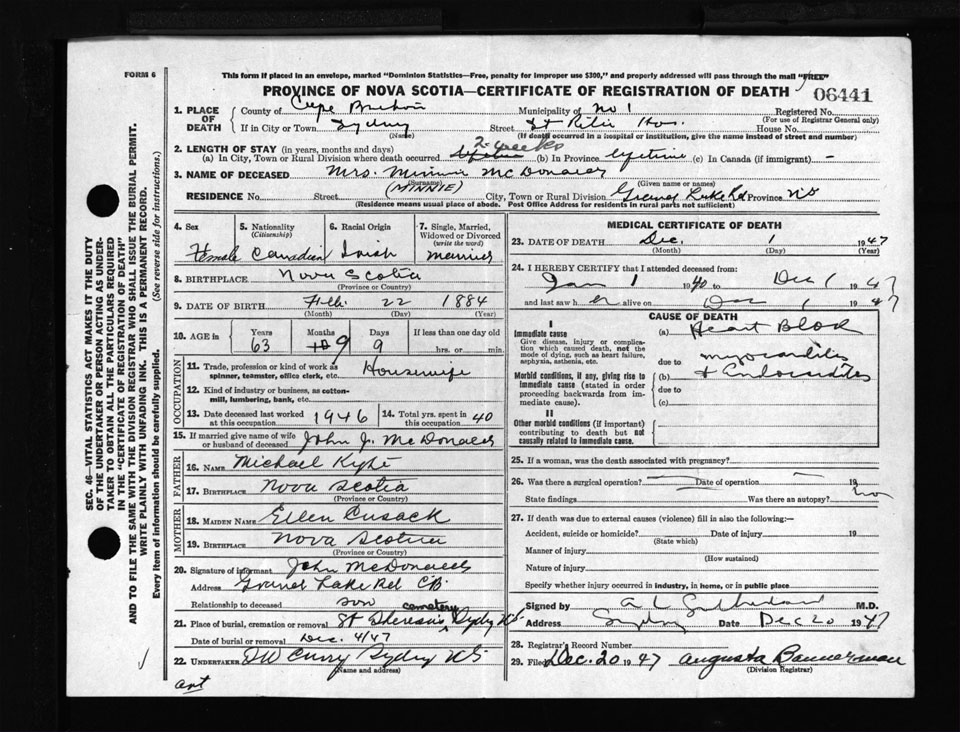 FORM 6
This form if placed in an envelope, marked "Dominion Statistics—Free, penalty for improper use $300," and properly addressed will pass through the mail "FREE"
PROVINCE OF NOVA SCOTIA—CERTIFICATE OF REGISTRATION OF DEATH
06441
1. PLACE OF DEATH
County of Cape Breton Municipality of No 1 Registered No.
(For use of Registrar General only)
If in City or Town Sydney Street St Rita Hos. House No.
(Name) (If death occurred in a hospital or institution, give the name instead of street and number)
2. LENGTH OF STAY (in years, months and days) 2 weeks
(a) In City, Town or Rural Division where death occurred (b) In Province lifetime (c) In Canada (if immigrant) -
3. NAME OF DECEASED Mrs. Minnie McDonald
(Surname) (MINNIE) (Given name or names)
RESIDENCE No. Street City, Town or Rural Division Grand Lake Rd Province NS
(Residence means usual place of abode. Post Office Address for residents in rural parts not sufficient)
4. Sex
Female
5. Nationality
(Citizenship)
Canadian
6. Racial Origin
Irish
7. Single, Married, Widowed or Divorced
(write the word)
Married
8. BIRTHPLACE Nova Scotia
(Province or Country)
9. DATE OF BIRTH Feb. 22 1884
(Month) (Day) (Year)
10. AGE in
Years 63
Months 9
Days 9
If less than one day old
hrs. or min.
OCCUPATION
11. Trade, profession or kind of work as spinner, teamster, office clerk, etc. Housewife
12. Kind of industry or business, as cotton-mill, lumbering, bank, etc.
13. Date deceased last worked at this occupation 1946
14. Total yrs. spent in this occupation 40
15. If married give name of wife or husband of deceased John J. McDonald
FATHER
16. NAME Michael Kyte
17. BIRTHPLACE Nova Scotia
(Province or Country)
MOTHER
18. MAIDEN NAME Ellen Cusack
19. BIRTHPLACE Nova Scotia
(Province or Country)
20. Signature of informant John McDonald
Address Grand Lake Rd CB
Relationship to deceased son
21. Place of burial, cremation or removal St Theresa's cemetery Sydney NS
Date of burial or removal Dec. 4/47
22. UNDERTAKER DW Curry Sydney NS
(Name and address)
MEDICAL CERTIFICATE OF DEATH
23. DATE OF DEATH Dec. 1 1947
(Month) (Day) (Year)
24. I HEREBY CERTIFY that I attended deceased from:
Jan 1 1940 to Dec 1 1947
and last saw her alive on Dec 1 1947
CAUSE OF DEATH
I
Immediate cause
Give disease, injury or complication which caused death, not the mode of dying, such as heart failure, asphyxia, asthenia, etc.
(a) Heart Block
due to myocarditis
Morbid conditions, if any, giving rise to immediate cause (stated in order proceeding backwards from immediate cause).
(b) + Endocarditis
due to
(c)
II
Other morbid conditions (if important) contributing to death but not causally related to immediate cause.
25. If a woman, was the death associated with pregnancy?
26. Was there a surgical operation? Date of operation 19
State findings Was there an autopsy? no
27. If death was due to external causes (violence) fill in also the following:—
Accident, suicide or homicide? Date 19
(State which)
Manner of injury
(How sustained)
Nature of injury
Specify whether injury occurred in industry, in home, or in public place
Signed by A L Sutherland M.D.
Address Sydney Date Dec 20 1947
28. Registrar's Record Number
29. Filed Dec. 20 1947 Augusta Bannerman
(Division Registrar)
SEC. 46—VITAL STATISTICS ACT MAKES IT THE DUTY
OF THE UNDERTAKER OR PERSON ACTING AS UNDER-
TAKER TO OBTAIN ALL THE PARTICULARS REQUIRED
IN THE "CERTIFICATE OF REGISTRATION OF DEATH"
AND TO FILE THE SAME WITH THE DIVISION REGISTRAR WHO SHALL ISSUE THE BURIAL PERMIT.
WRITE PLAINLY WITH UNFADING INK. THIS IS A PERMANENT RECORD.
Every item of information should be carefully supplied. (See reverse side for instructions.)